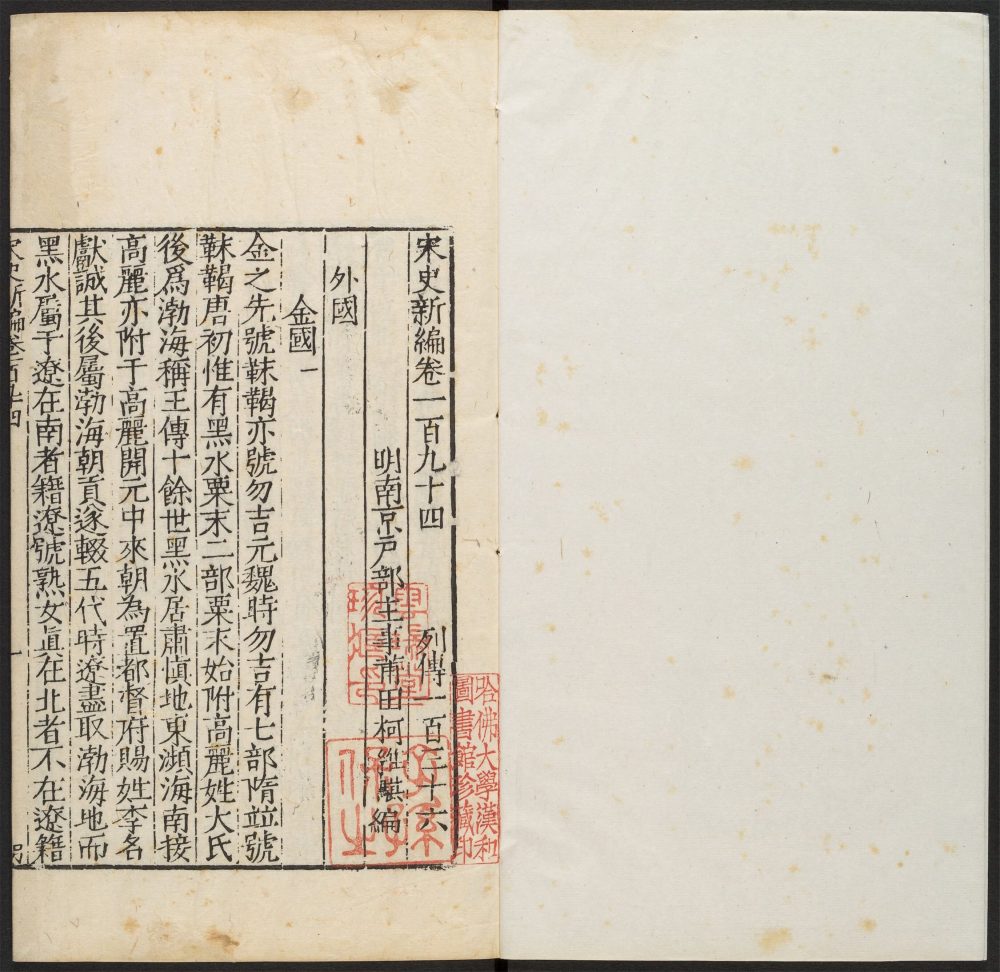 宋史新編卷一百九十四 列傳一百三十六
明南京戶部主事莆田柯維騏編
外國
金國一
金之先號靺鞨亦號勿吉元魏時勿吉有七部隋竝號
靺鞨唐初惟有黑水粟末二部粟末始附高麗姓大氏
後爲渤海稱王傳十餘世黑水居肅慎地東瀕海南接
高麗亦附于高麗開元中來朝為置都督府賜姓李名
獻誠其後屬渤海朝貢遂輟五代時遼盡取渤海地而
黑水屬于遼在南者籍遼號熟女眞在北者不在遼籍
宋史新編卷一百九十四
一
哈佛大學漢和
圖書館珍藏印